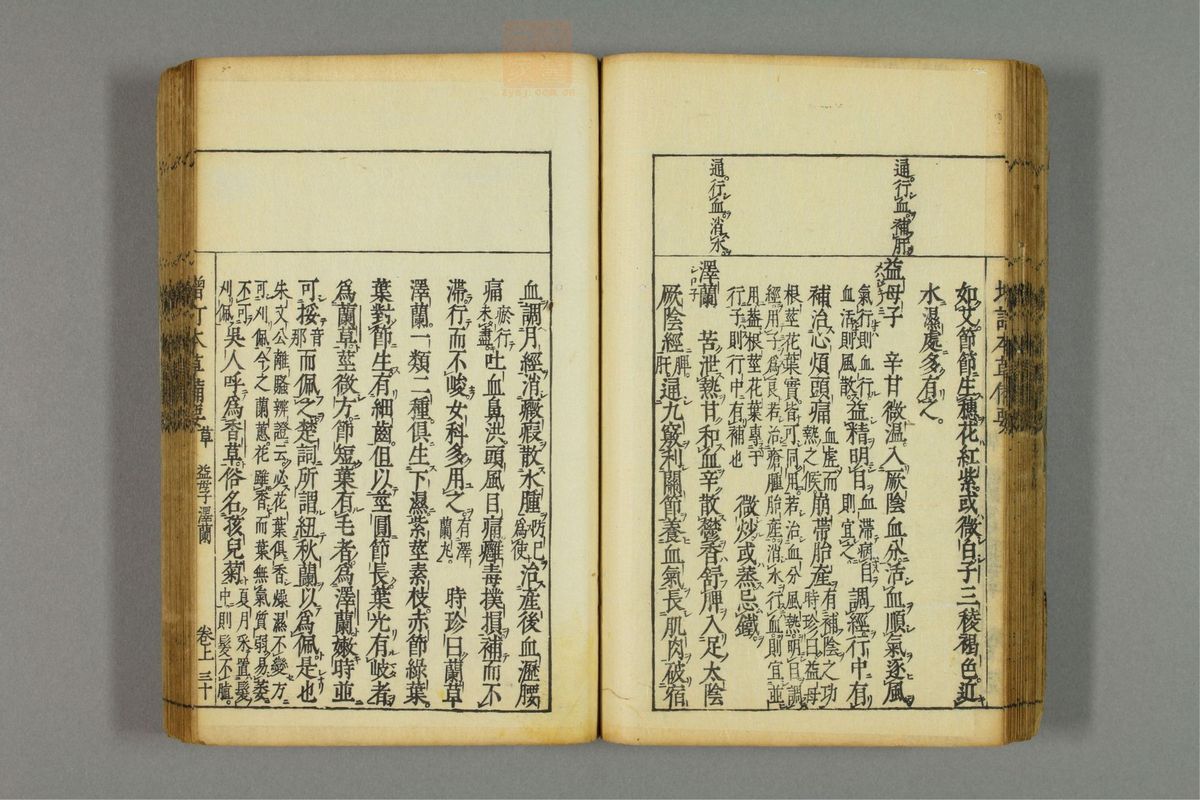 如艾節節生穗花紅紫或微白子三稜褐色近
水濕處多有之。
通行血補肝
益母子 辛甘微温入厥陰血分活血順氣逐風
氣行則血行血活則風散益精明目血滯病目則宜之調經行中有
補治心煩頭痛血虛而熱之候崩帶胎產有補陰之功時珍曰益母
根莖花葉實皆可同用若治血分風熱明目調
經用子為良若治瘡腫胎產消水行血則宜並
用蓋根莖花葉專于
行子則行中有補也 微炒或蒸忌鐵
通行血消水
澤蘭 苦泄熱甘和血辛散鬱香舒脾入足太陰
厥陰經脾肝通九竅利關節養血氣長肌肉破宿
血調月經消癥瘕散水腫防巳為使治產後血瀝腰
痛瘀行未盡吐血鼻洪頭風目痛癰毒撲損補而不
滯行而不峻女科多用之有澤蘭丸 時珍曰蘭草
澤蘭一類二種俱生下濕紫莖素枝赤節綠葉
葉對節生有細齒但以莖圓節長葉光有岐者
為蘭草莖微方節短葉有毛者為澤蘭嫩時並
可挼音那而佩之楚詞所謂紐秋蘭以為佩是也
朱文公離騷辨證云必花葉俱香燥濕不變方
可刈佩今之蘭蕙花雖香而葉無氣質弱易萎
不可刈佩吳人呼為香草俗名孩兒菊夏月采置髮中則髮不䐈
增訂本草備要 草 益母子澤蘭 卷上 三十